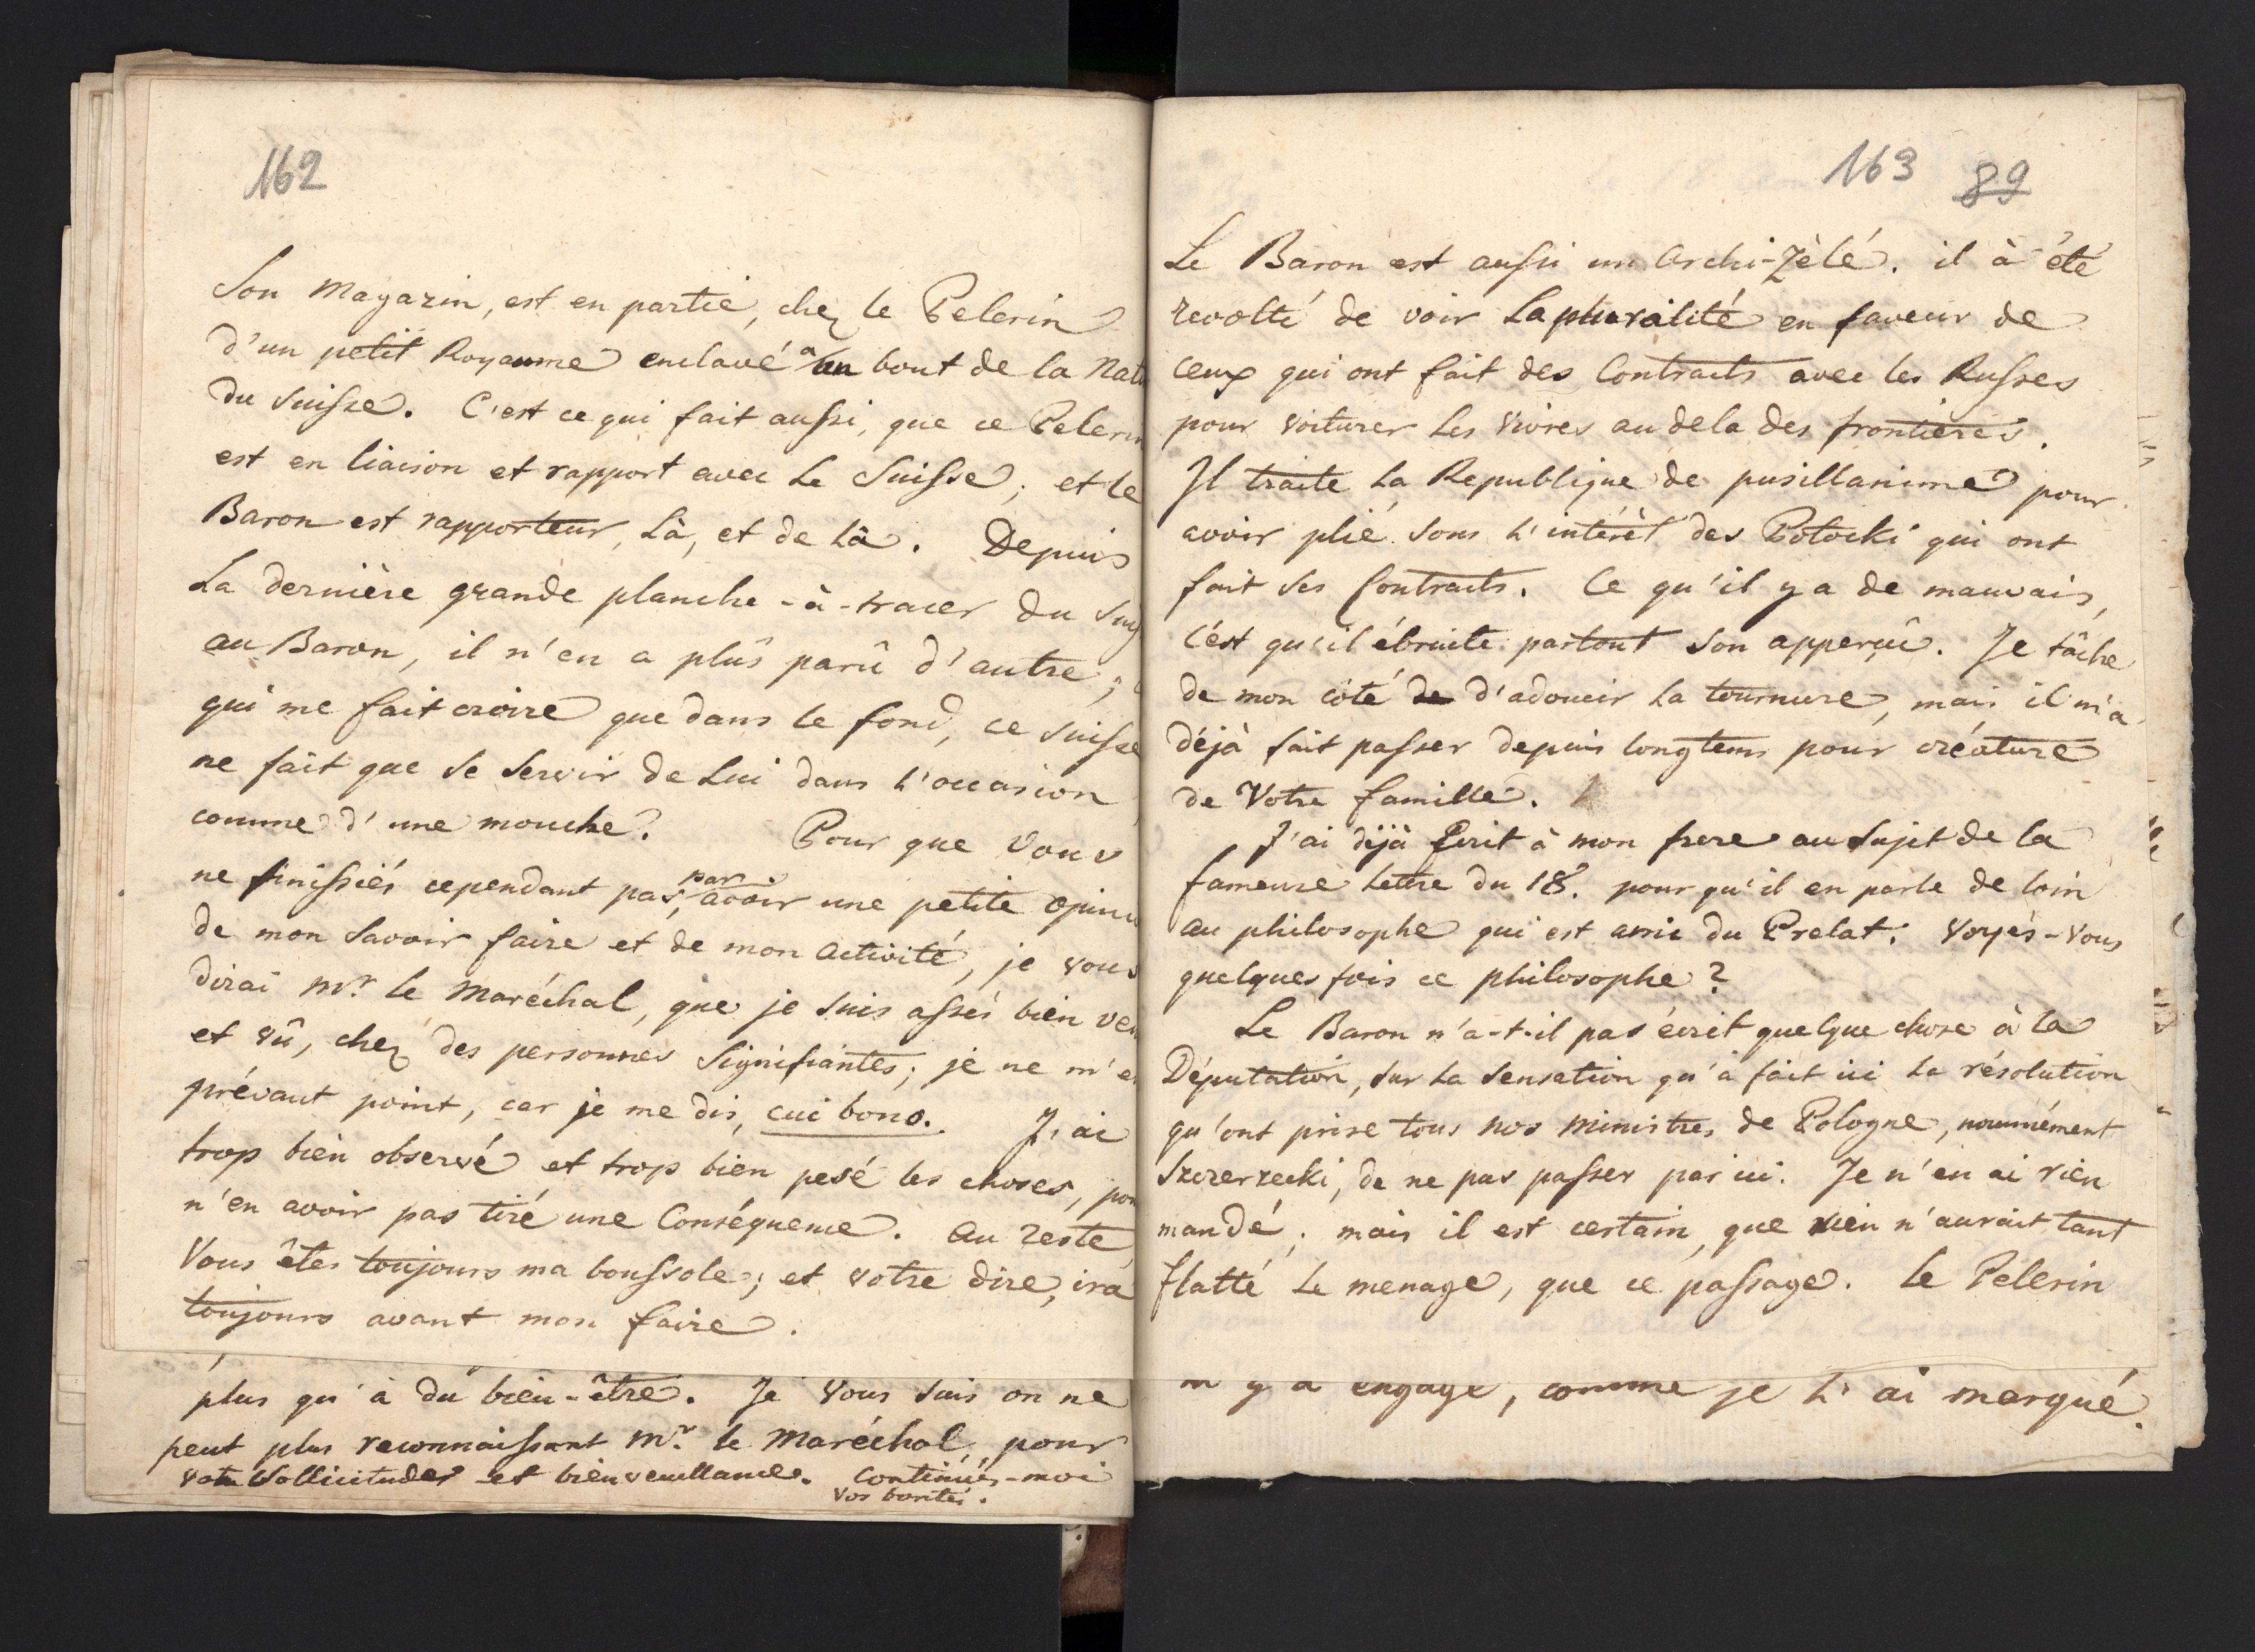 162
Son Magazin, est en partie, chez le Pelerin
d'un petit Royaume enclavé au bout de la Nat
du Suisse. C'est ce qui fait aussi, que ce Peleri
est en liaison et rapport avec Le Suisse; et le
Baron est rapporteur, Là, et de Là. Depuis
La dernière grande planche-à-tracer du
au Baron, il n'en a plûs parû d'autre;
qui me fait croire que dans le fond, ce Suisse
ne fait que se servir de Lui dans l'occasion
comme d'une mouche. Pour que Vous
ne finissiés cependant pas, par avoir une petite opini
de mon Savoir faire et de mon activité, je vous
dirai Mr. le Maréchal, que je suis assés bien
et vû, chez des personnes Signifiantes; je ne m'e
prévaut point, car je me dis, cui bono. J'ai
trop bien observé et trop bien pesé les choses, pou
n'en avoir pas tiré une Conséquence. Au reste
Vous êtes toujours ma boussole; et votre dire, ira
toujours avant mon faire.
plus qu'à du bien-être. Je Vous suis on ne
peut plus reconnaissant Mr. le Maréchal, pour
votre Sollicitudes et bienveuillance. Continués-moi
vos bontés.
163 89
Le Baron est aussi un Archi-Zèlé. il à été
revolté de voir La pluralité en faveur de
ceux qui ont fait des Contracts avec les Russes
pour voiturer Les vivres au dela des frontieres.
Il traite La Republique de pusillanime pour
avoir plié sous L'intérèt des Potocki qui ont
fait ses Contracts. Ce qu'il y a de mauvais,
c'est qu'il ébruite partout Son apperçû. Je tâche
de mon coté de d'adoucir La tournure, mais il m'a
déjà fait passer depuis longtems pour créature
de Votre famille.
J'ai déjà Ecrit à mon frere au Sujet de la
fameuse Lettre du 18. pour qu'il en parle de loin
au philosophe qui est ami du Prelat. Voyés-Vous
quelques fois ce philosophe?
Le Baron n'a-t-il pas écrit quelque chose à la
Députation, sur La Sensation qu'à fait ici La résolution
qu'ont prise tous nos Ministres de Pologne, nommément
Szczerzecki, de ne pas passer par ici. Je n'en ai rien
mandé; mais il est certain, que rien n'aurait tant
flatté Le menage, que ce passage. Le Pelerin
m'y a engagé, comme je L'ai marqué.